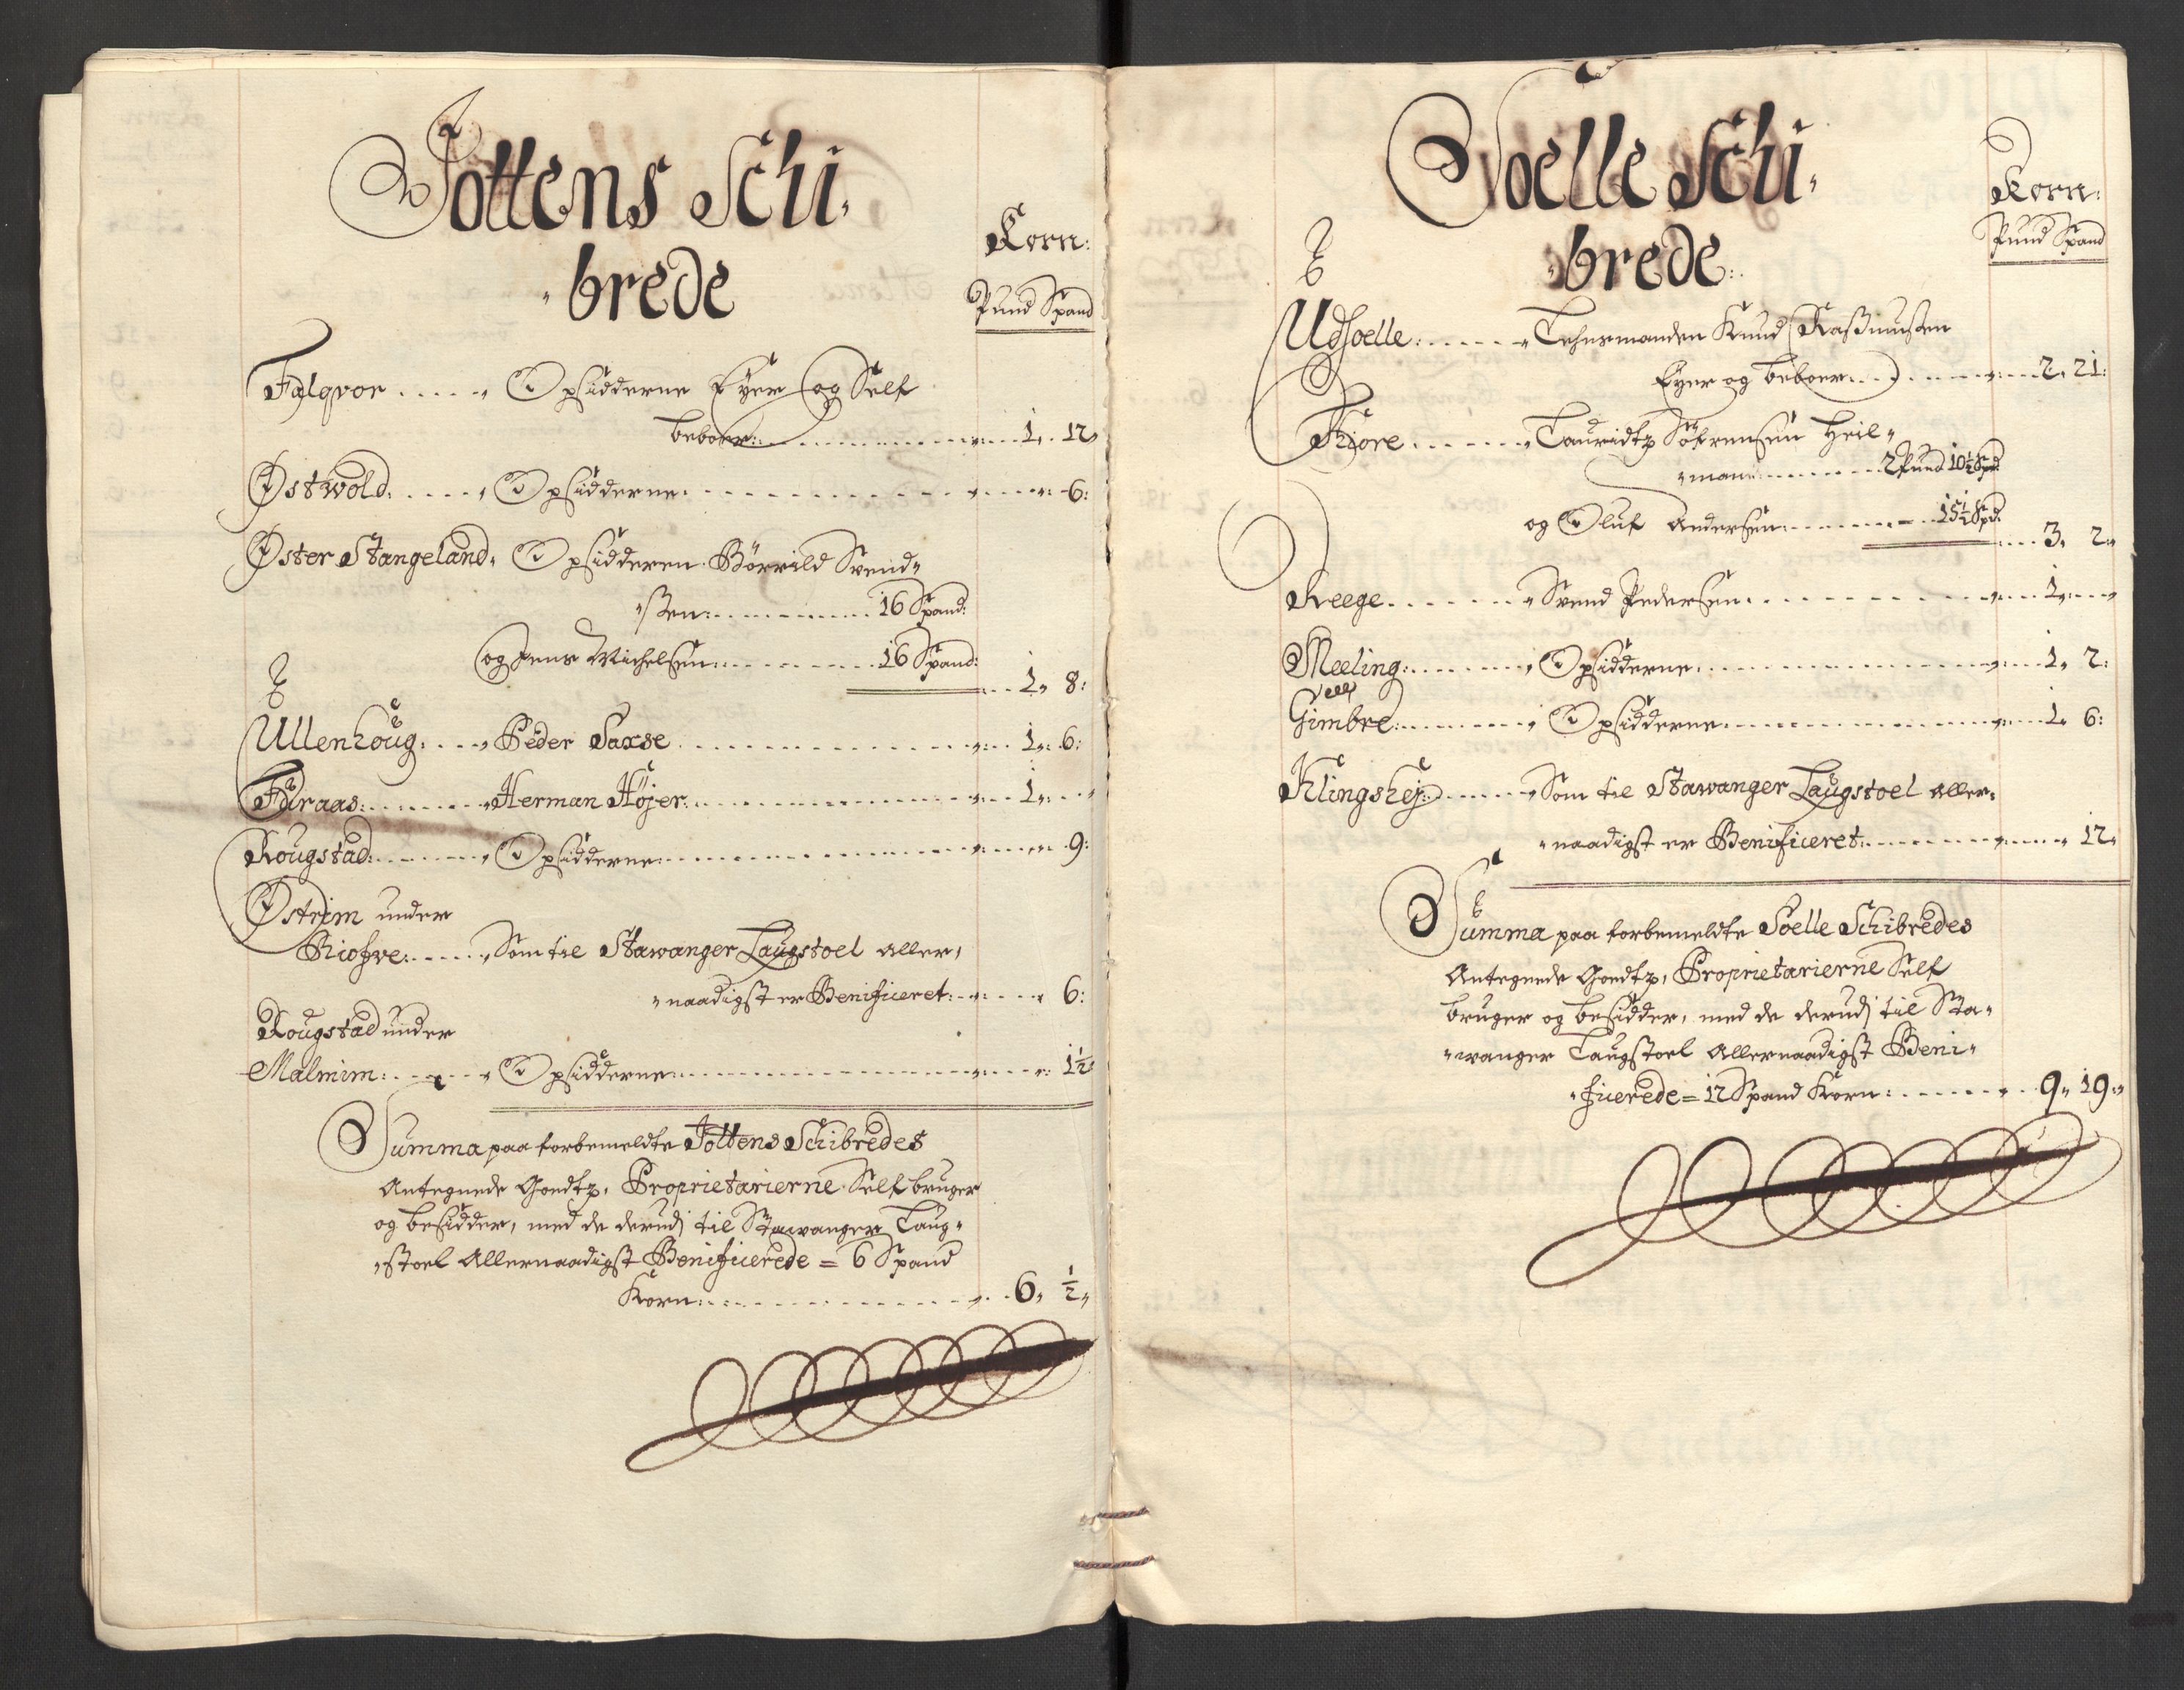 Jottens Schi-
-brede
Korn:
Pund Spand
Falqvor ..... Opsidderne Eyer og Self
beboer: ..... 1. 12
Østwold: ..... Opsidderne ..... 6:
Øster Stangeland. Opsidderen Børrild Svend-
-ssen: ..... 16 Spand:
og Jens Michelsen: ..... 16 Spand:
..... 1. 8:
Ullenhoug. .... Peder Saxse ..... 1. 6:
Faaraas: ..... Herman Höjer: ..... 1. ..
Rougstad: ..... Opsidderne ..... 9:
Østrim under
Riofve: ..... Som til Stawanger Laugstoel aller-
-naadigst er Benificeret: ..... 6:
Rougstad under
Malmim: ..... Opsidderne ..... 1½
Summa paa forbemeldte Jottens Schibredes
Antegnede Goedtz, Proprietarierne Self bruger
og besidder, med de derudj til Stawanger Laug-
-stoel Allernaadigst Benificerede = 6 Spand
Korn: ..... 6. ½
Soelle Schi-
-brede:
Korn:
Pund Spand
Udsoelle: ..... Lehnsmanden Knud Rassmussen
Eyer og beboer ..... 2. 21:
Kiore ..... Lauridtz Söfrensen Heil-
-man: ..... 2 Pund 10½ Spd:
og Oluf Andersen: ..... 15½ Spd:
..... 3. 2
Reege ..... Svend Pedersen ..... 1. ..
Meeling: ..... Opsidderne ..... 1. 2:
Gimbre: ..... Opsidderne ..... 1. 6:
Klingshej: ..... Som til Stawanger Laugstoel aller-
-naadigst er Benificeret: ..... 12
Summa paa forbemeldte Soelle Schibredes
Antegnede Goedtz, Proprietarierne Self
bruger og besidder, med de derudj til Sta-
-wanger Laugstoel Allernaadigst Beni-
-ficerede = 12 Spand Korn: ..... 9. 19: